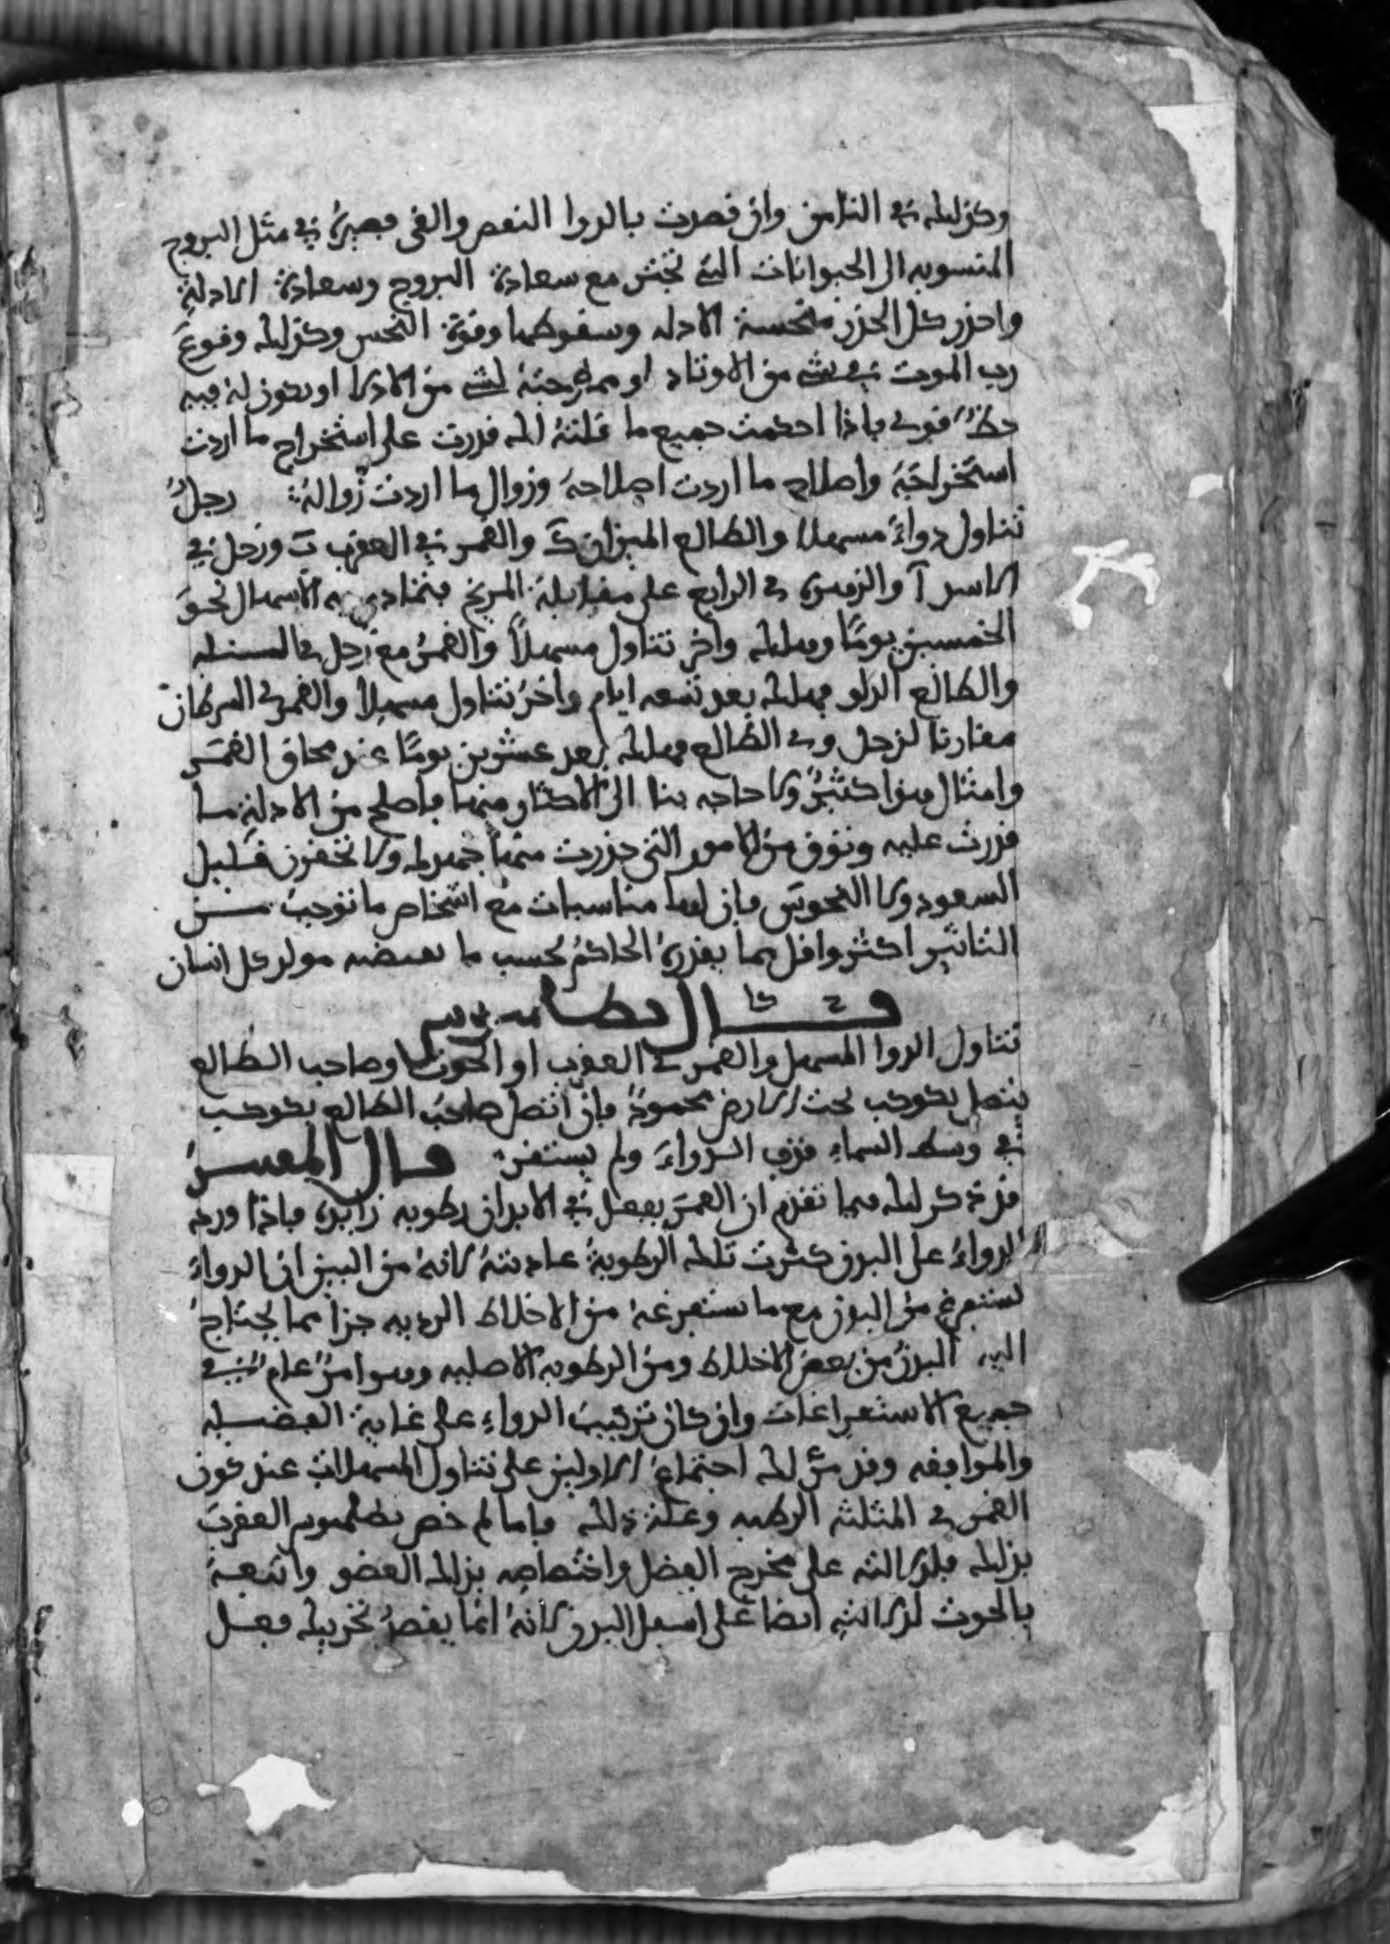 وكذلك في الثامن وان قصدت بالدوا النفض والقى فصيره في مثل البروج
المنسوبه الى الحيوانات التي تجتر مع سعادة البروج وسعادة الادلة
واحذر كل الحذر منحسة الادله وسقوطها وقوة النحس وكذلك وقوع
رب الموت في شي من الاوتاد او ممازجته لشي من الادلا او يكون له فيه
حظ قوي فاذا احكمت جميع ما قلته لك قدرت على استخراج ما اردت
استخراجه واصلاح ما اردت اصلاحه وزوال ما اردت زواله رجل
تناول دواء مسهلا والطالع الميزان والقمر في العقرب وزحل في
الاسد والزهرة في الرابع على مقابلة المريخ فتمادى به الاسهال نحو
الخمسين يوما وهلك واخر تناول مسهلا والقمر مع زحل في السنبله
والطالع الدلو فهلك بعد تسعه ايام واخر تناول مسهلا والقمر في السرطان
مقارنا لزحل وفي الطالع فهلك بعد عشرين يوما عند محاق القمر
وامثال هذا كثير ولا حاجه بنا الى الاكثار منها فاصلح من الادلة ما
قدرت عليه وتوق من الامور التي حذرت منها جهدك ولا تحقرن قليل
السعود ولا النحوس فان لها مناسبات مع اشخاص ما توجب من
التاثير اكثر واقل مما يقدره الحاكم بحسب ما يقتضيه مولد كل انسان
قال بطلميوس
تناول الدوا المسهل والقمر في العقرب او الحوت وصاحب الطالع
يتصل بكوكب تحت الارض محمود فان اتصل صاحب الطالع بكوكب
في وسط السماء قذف الدواء ولم يستقر قال المفسر
قد ذكر لك فيما تقدم ان القمر يفعل في الابدان رطوبه زايدة فاذا ورد
الدواء على البدن كسرت تلك الرطوبة عاديته لانه من البين ان الدواء
يستفرغ من البدن مع ما يستفرغه من الاخلاط الرديه جزا مما يحتاج
اليه البدن من بعض الاخلاط ومن الرطوبه الاصليه وهو امر عام في
جميع الاستفراغات وان كان تركيب الدواء على غاية الفضيله
والموافقه وقد مر لك اجتماع الاولين على تناول المسهلات عند كون
القمر في المثلثه الرطبه وعلة ذلك واما لم خص بطلميوس العقرب
بذلك فلدلالته على مخرج الفضل واختصاصه بذلك العضو واتبعه
بالحوت لدلالته ايضا على اسفل البدن لانه انما يقصد تحريك فعل